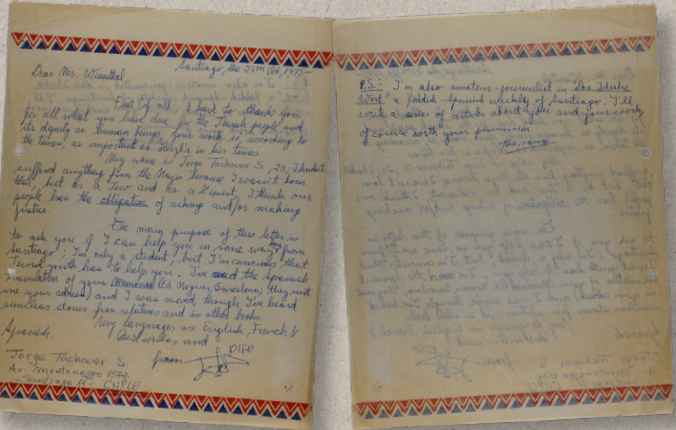 Santiago, the 27th Oct, 1975
Dear Mr. Wiesenthal,
First of all, I have to thank you
for all what you have done for the Jewish people and
its dignity as human beings; your work is according to
the times, as important as Herzl's in his times.
My name is Jorge Tachauer S., 23; I hadn't
suffered anything from the Nazis because I wasn't born
that, but as a Jew and as a Zionist, I think our
people has the obligation of asking and/or making
justice.
The main purpose of this letter is
to ask you if I can help you in some way from
Santiago; I'm only a student, but I'm conscious that
youth has to help you. I've read the Spanish
translation of your (Ed. Noguer, Barcelona; they sent
me your address) and I was moved, though I've heard
similar stories from relatives and in other books.
My languages are English, French &
Spanish. Best wishes and
from
Jorge Tachauer S.
Av. Montenegro 1572
Santiago 11 - CHILE
P.S.: I'm also amateur-journalist in "Dos Idishe
Wort" a Yiddish-Spanish weekly of Santiago. I'll
write a series of articles about you and your work,
of course with your permission
The same